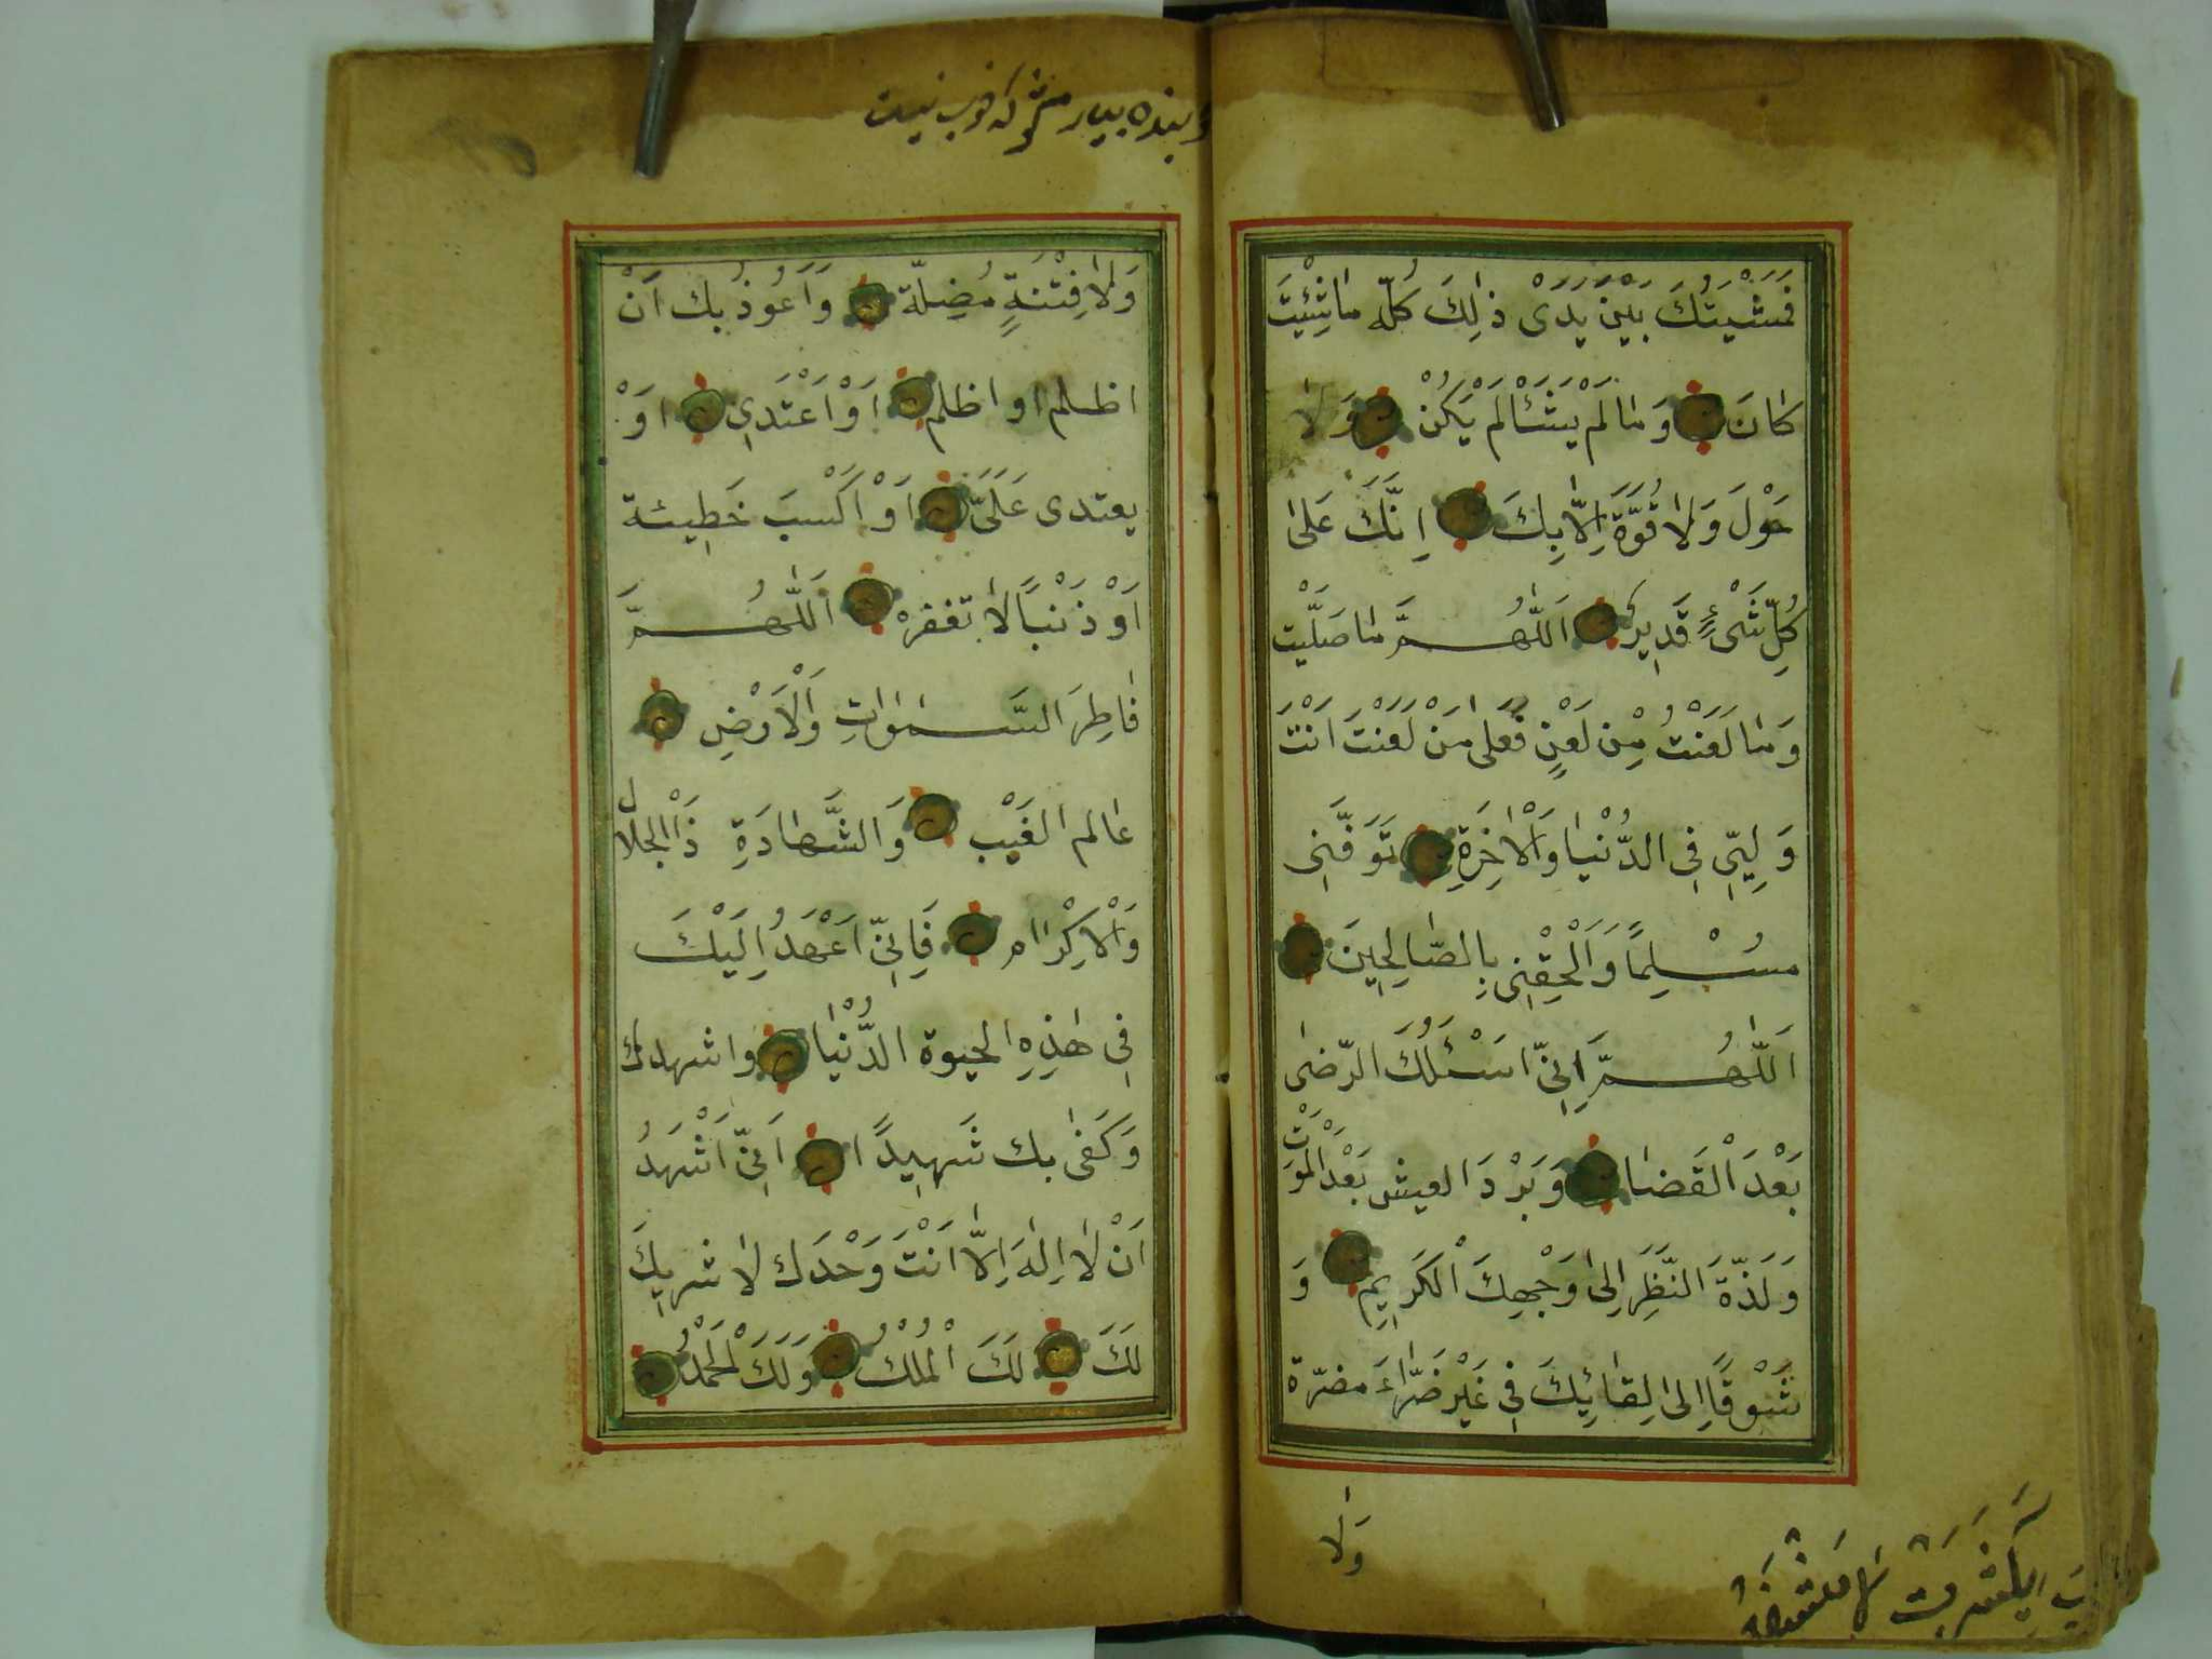 فَمَشْيَتُكَ بَيْنَ يَدَىْ ذٰلِكَ كُلِّه مَا شِئْتَ
كَانَ وَمَا لَمْ يَشَأْ لَمْ يَكُنْ وَلَا
حَوْلَ وَلَا قُوَّةَ اِلَّا بِكَ اِنَّكَ عَلىٰ
كُلِّ شَىْءٍ قَدِير اَللّٰهُمَّ مَا صَلَّيْت
وَمَا لَعَنْتُ مِنْ لَعْنٍ فَعَلى مَنْ لَعَنْتَ اَنْتَ
وَلِيِّى فِى الدُّنْيَا وَالْاٰخِرَةِ تَوَفَّنِى
مُسْلِمًا وَاَلْحِقْنِى بِالصَّالِحِينَ
اَللّٰهُمَّ اِنِّى اَسْئَلُكَ الرِّضىٰ
بَعْدَ الْقَضَا وَبَرْدَ العيش بَعْدَ الْمَوْتِ
وَلَذَّةَ النَّظَرِ اِلىٰ وَجْهِكَ الْكَرِيمِ وَ
شَوْقًا اِلىٰ لِقَائِكَ فِى غَيْرِ ضَرَّاءَ مضرّة
وَلَا
وَلَا فِتْنَةٍ مُضِلّة وَاَعُوذُ بك اَنْ
اظلم او اظلم اَوْ اَعْتَدِى اَوْ
يعتدى عَلَىَّ اَوْ اَكْسبَ خَطِيئة
اَوْ ذَنْبًا لَا تغفره اَللّٰهُمَّ
فَاطِرَ السَّمٰوَاتِ وَالْاَرْضِ
عَالم الغَيْب وَالشَّهَادَةِ ذَا الْجلال
وَالْاِكْرَام فَاِنِّى اَعْهَدُ اِلَيْكَ
فِى هٰذِهِ الحيوة الدُّنْيَا واشهدك
وَكَفىٰ بك شَهِيدًا اَنِّى اَشْهَدُ
اَنْ لَا اِلٰهَ اِلَّا اَنْتَ وَحْدَك لَا شريكَ
لَكَ لَكَ الْمُلْكُ وَلَكَ الْحَمْدُ